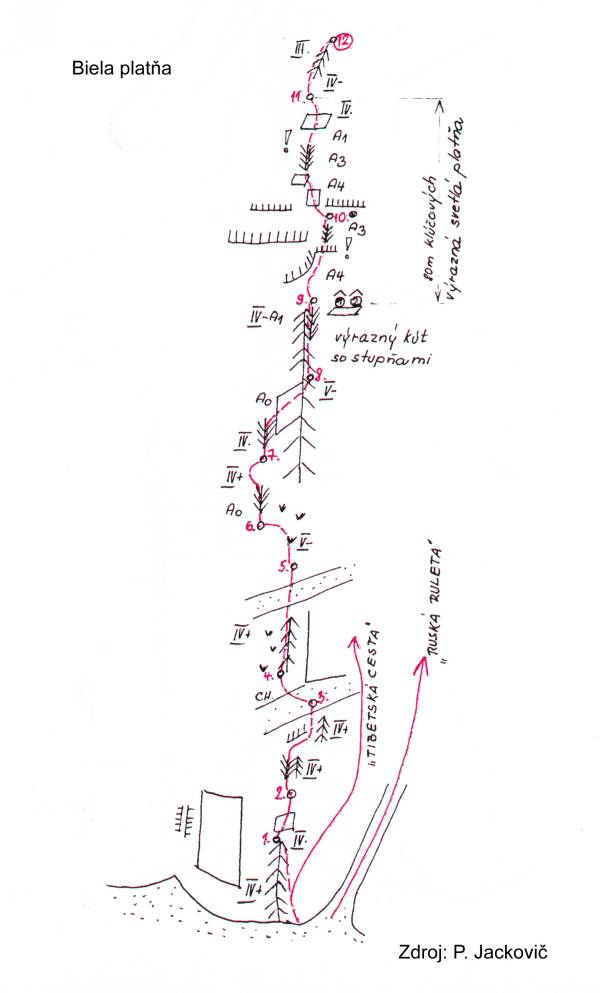 Biela platňa
III.
12
IV-
11.
IV.
A1
!
A3
A4
10.
A3
!
A4
80m kľúčových
výrazná svetlá platňa
9.
IV-A1
výrazný kút
so stupňami
8.
V-
A0
IV.
7.
IV+
A0
6.
V-
5.
IV+
4.
CH.
3.
IV+
IV+
2.
1.
IV.
IV+
„TIBETSKÁ CESTA"
„RUSKÁ RULETA"
Zdroj: P. Jackovič